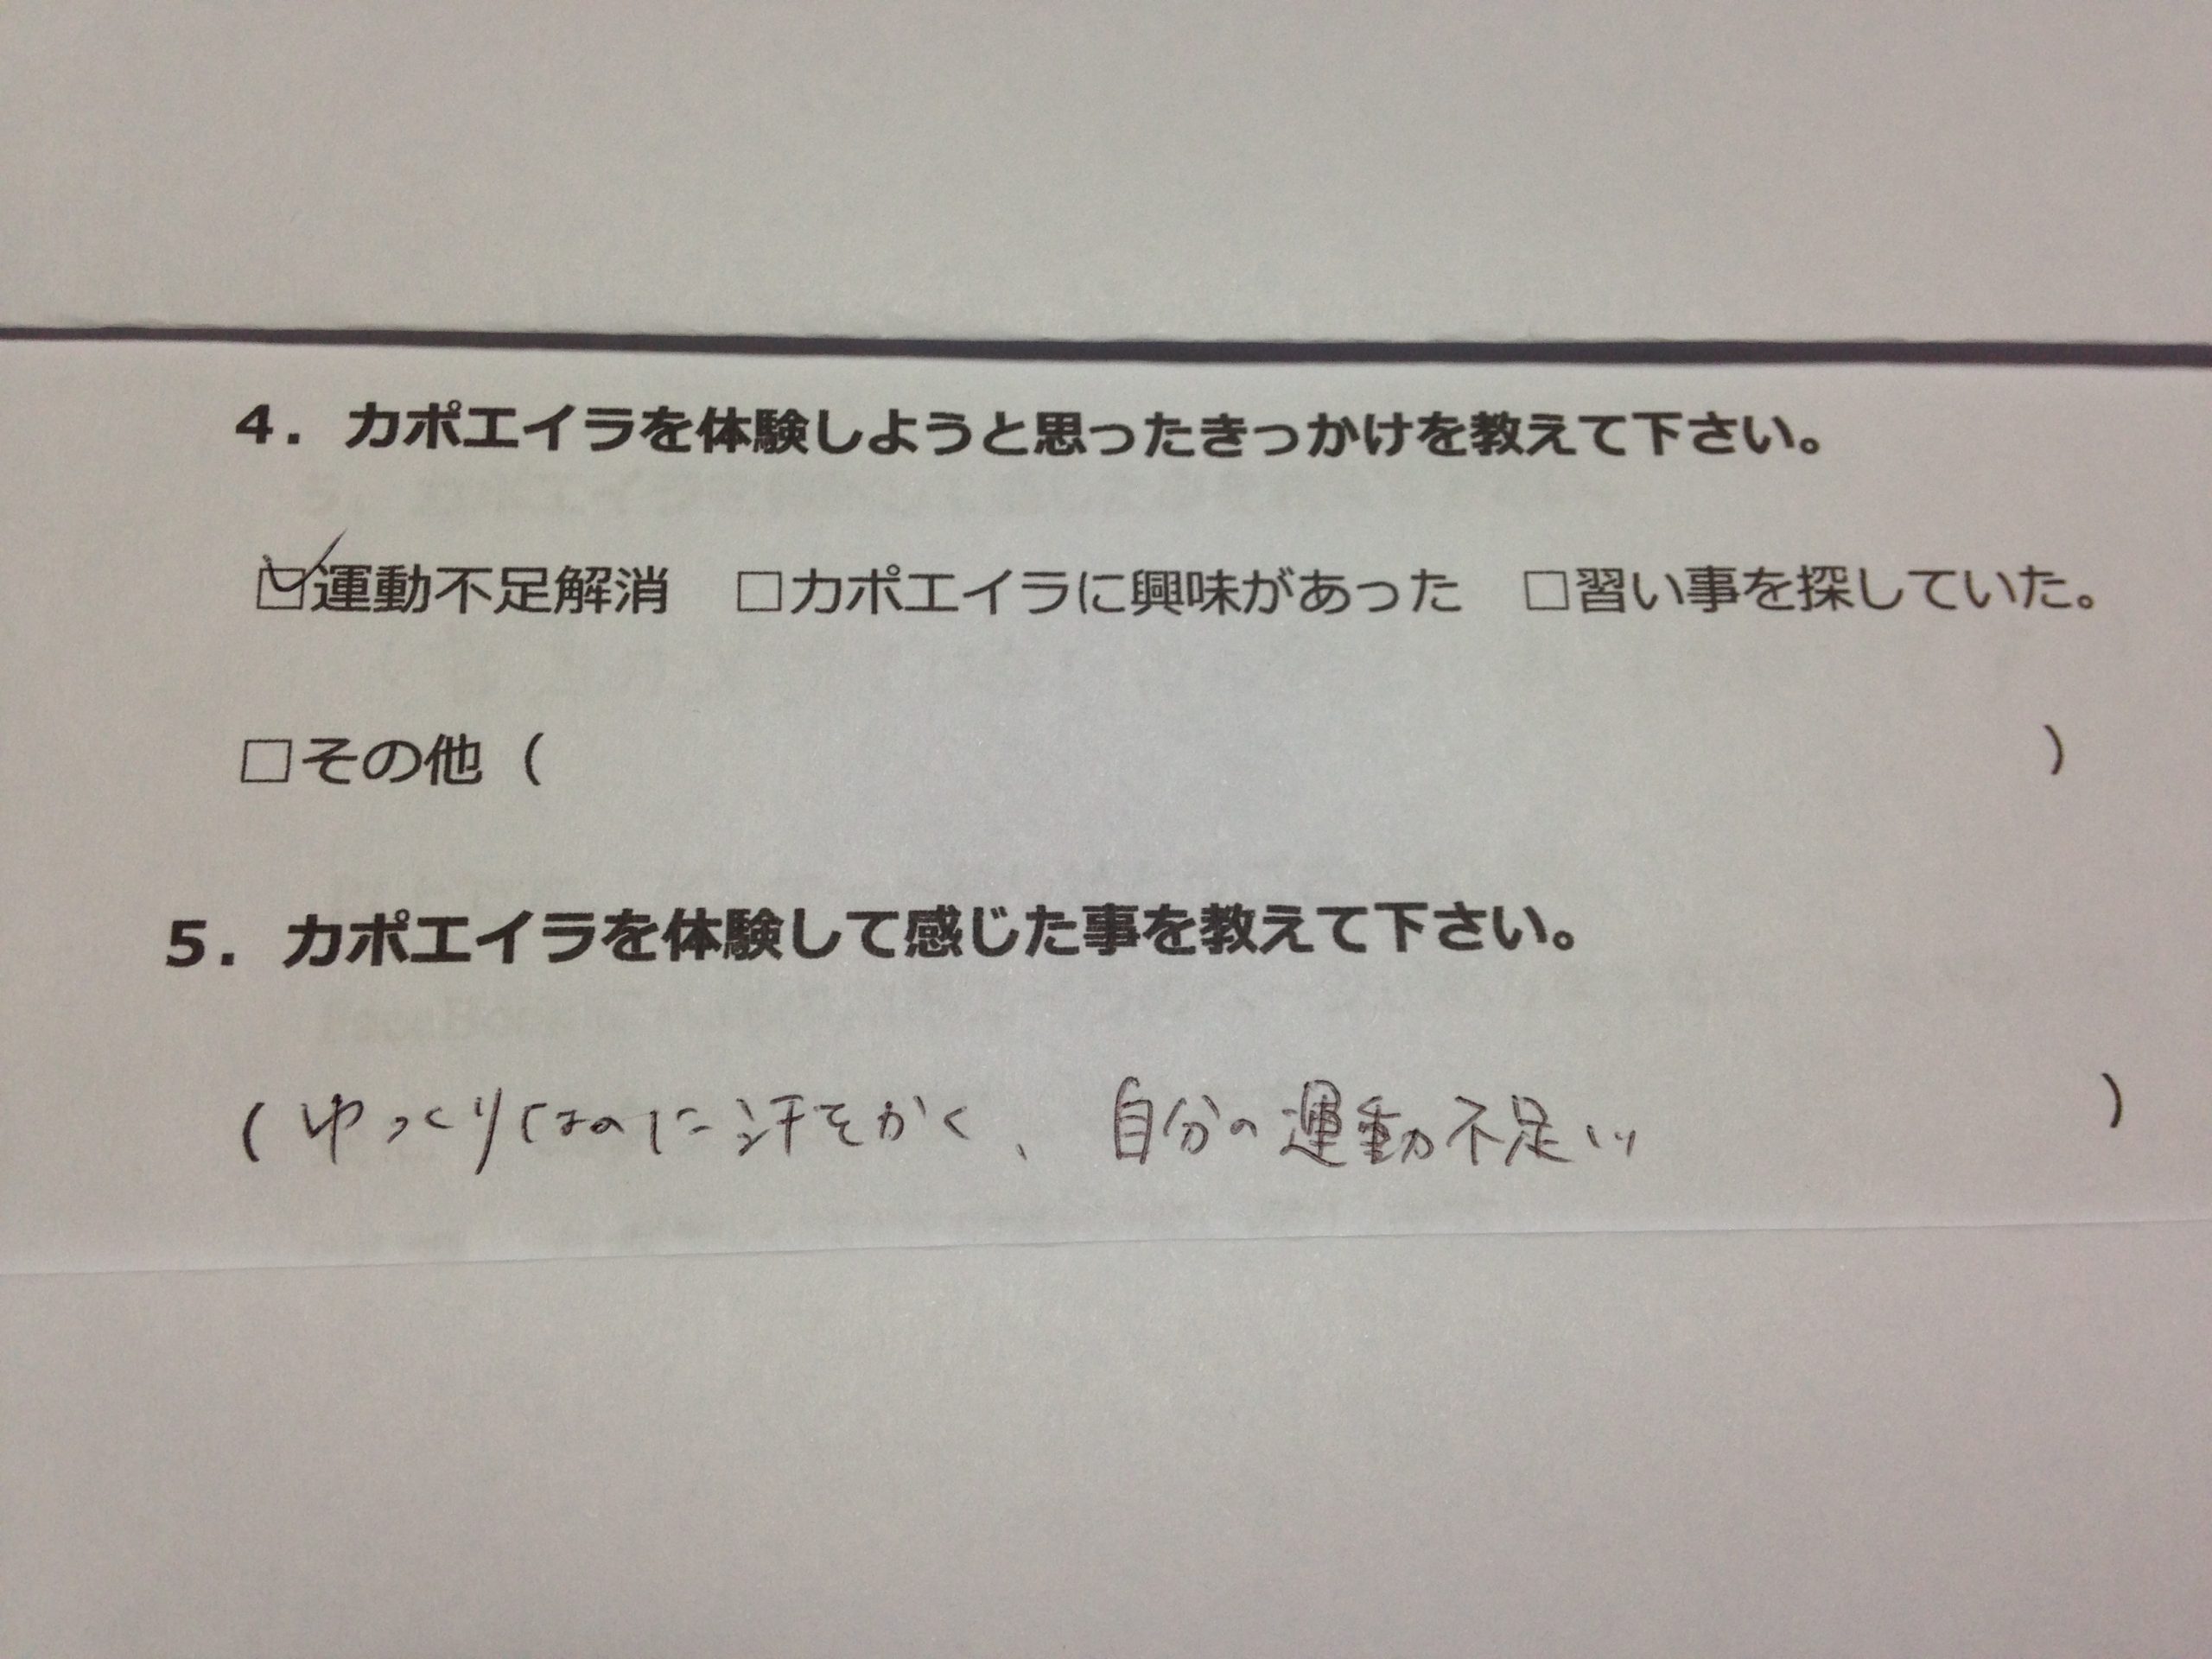 4．カポエイラを体験しようと思ったきっかけを教えて下さい。
☑運動不足解消　□カポエイラに興味があった　□習い事を探していた。
□その他（　　　　　　　　　　　　　　　　　　　　　　　）
5．カポエイラを体験して感じた事を教えて下さい。
（ゆっくりなのに汗をかく、自分の運動不足　　　　　　　）